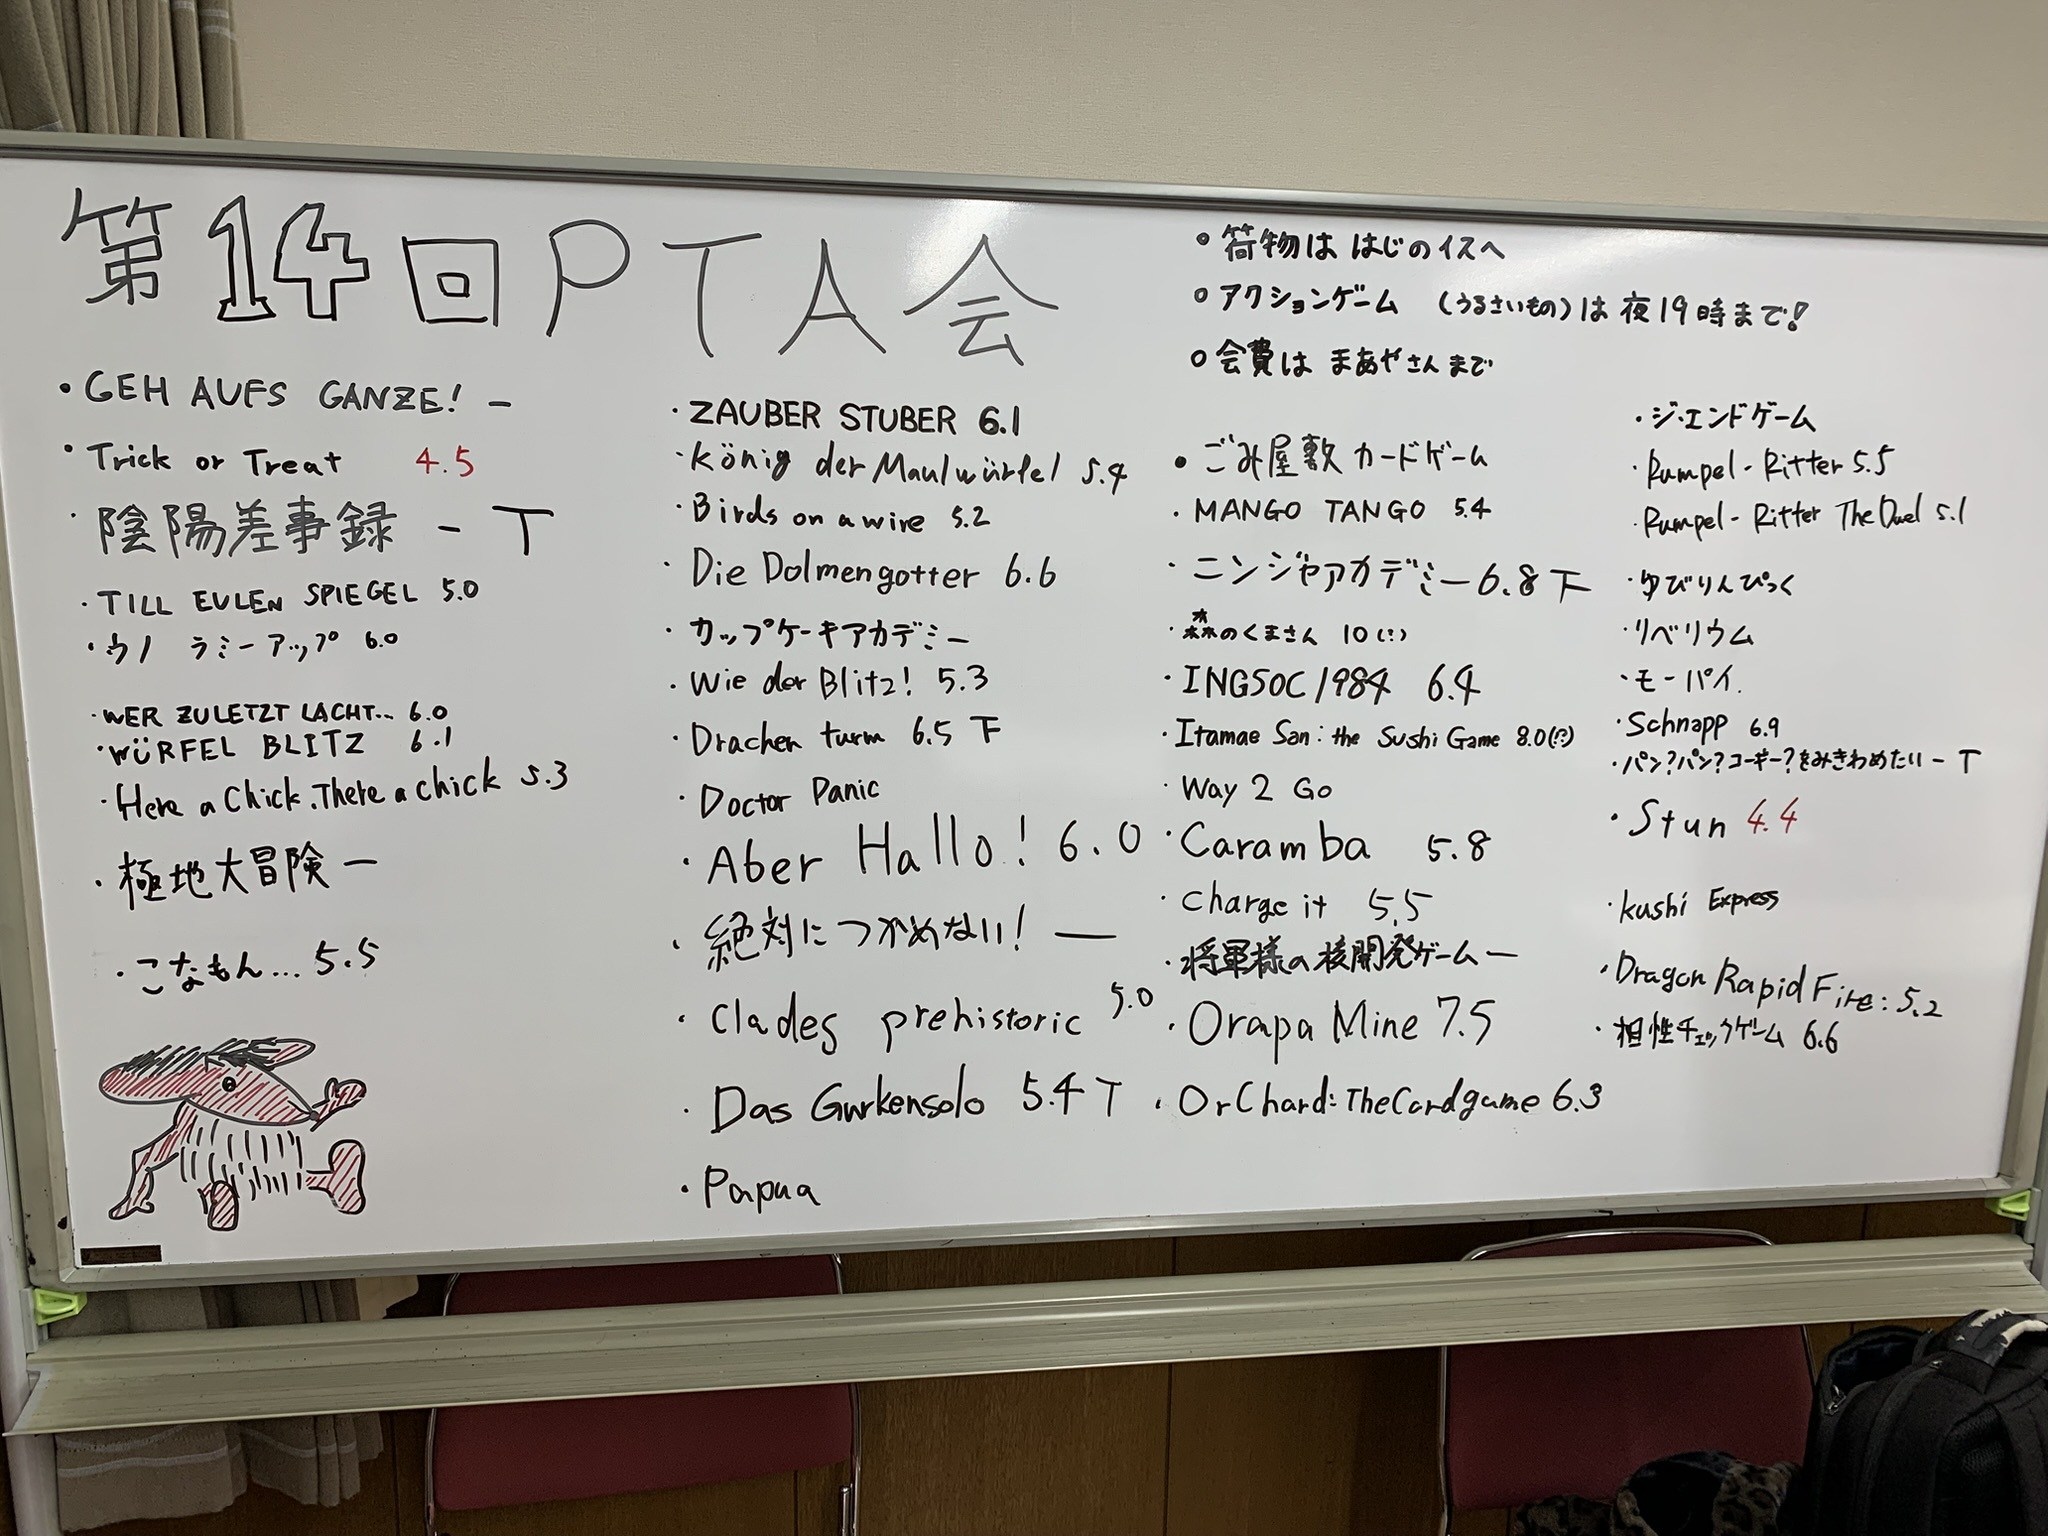 第14回PTA会
○ 荷物は はじのイスへ
○ アクションゲーム (うるさいもの)は 夜19時まで!
○ 会費は まあやさんまで
・GEH AUFS GANZE! −
・Trick or Treat 4.5
・陰陽差事録 − T
・TILL EULEN SPIEGEL 5.0
・ウノ ラミーアップ 6.0
・WER ZULETZT LACHT... 6.0
・WÜRFEL BLITZ 6.1
・Here a Chick, There a chick 5.3
・極地大冒険 −
・こなもん... 5.5
・ZAUBER STUBER 6.1
・König der Maulwürfel 5.4
・Birds on a wire 5.2
・Die Dolmengotter 6.6
・カップケーキアカデミー
・Wie der Blitz! 5.3
・Drachen turm 6.5 下
・Doctor Panic
・Aber Hallo! 6.0
・絶対につかめない! −
・Clades prehistoric 5.0
・Das Gurkensolo 5.4 T
・Papua
・ごみ屋敷カードゲーム
・MANGO TANGO 5.4
・ニンジャアカデミー 6.8 下
・森のくまさん 10(?)
・INGSOC 1984 6.4
・Itamae San: the Sushi Game 8.0(?)
・Way 2 Go
・Caramba 5.8
・Charge it 5.5
・将軍様の核開発ゲーム −
・Orapa Mine 7.5
・OrChard: The Cardgame 6.3
・ジ・エンドゲーム
・Rumpel-Ritter 5.5
・Rumpel-Ritter The Duel 5.1
・ゆびりんぴっく
・リベリウム
・モーパイ.
・Schnapp 6.9
・パン?パン?コーギー?をみきわめたい − T
・Stun 4.4
・Kushi Express
・Dragon Rapid Fire: 5.2
・相性チェックゲーム 6.6